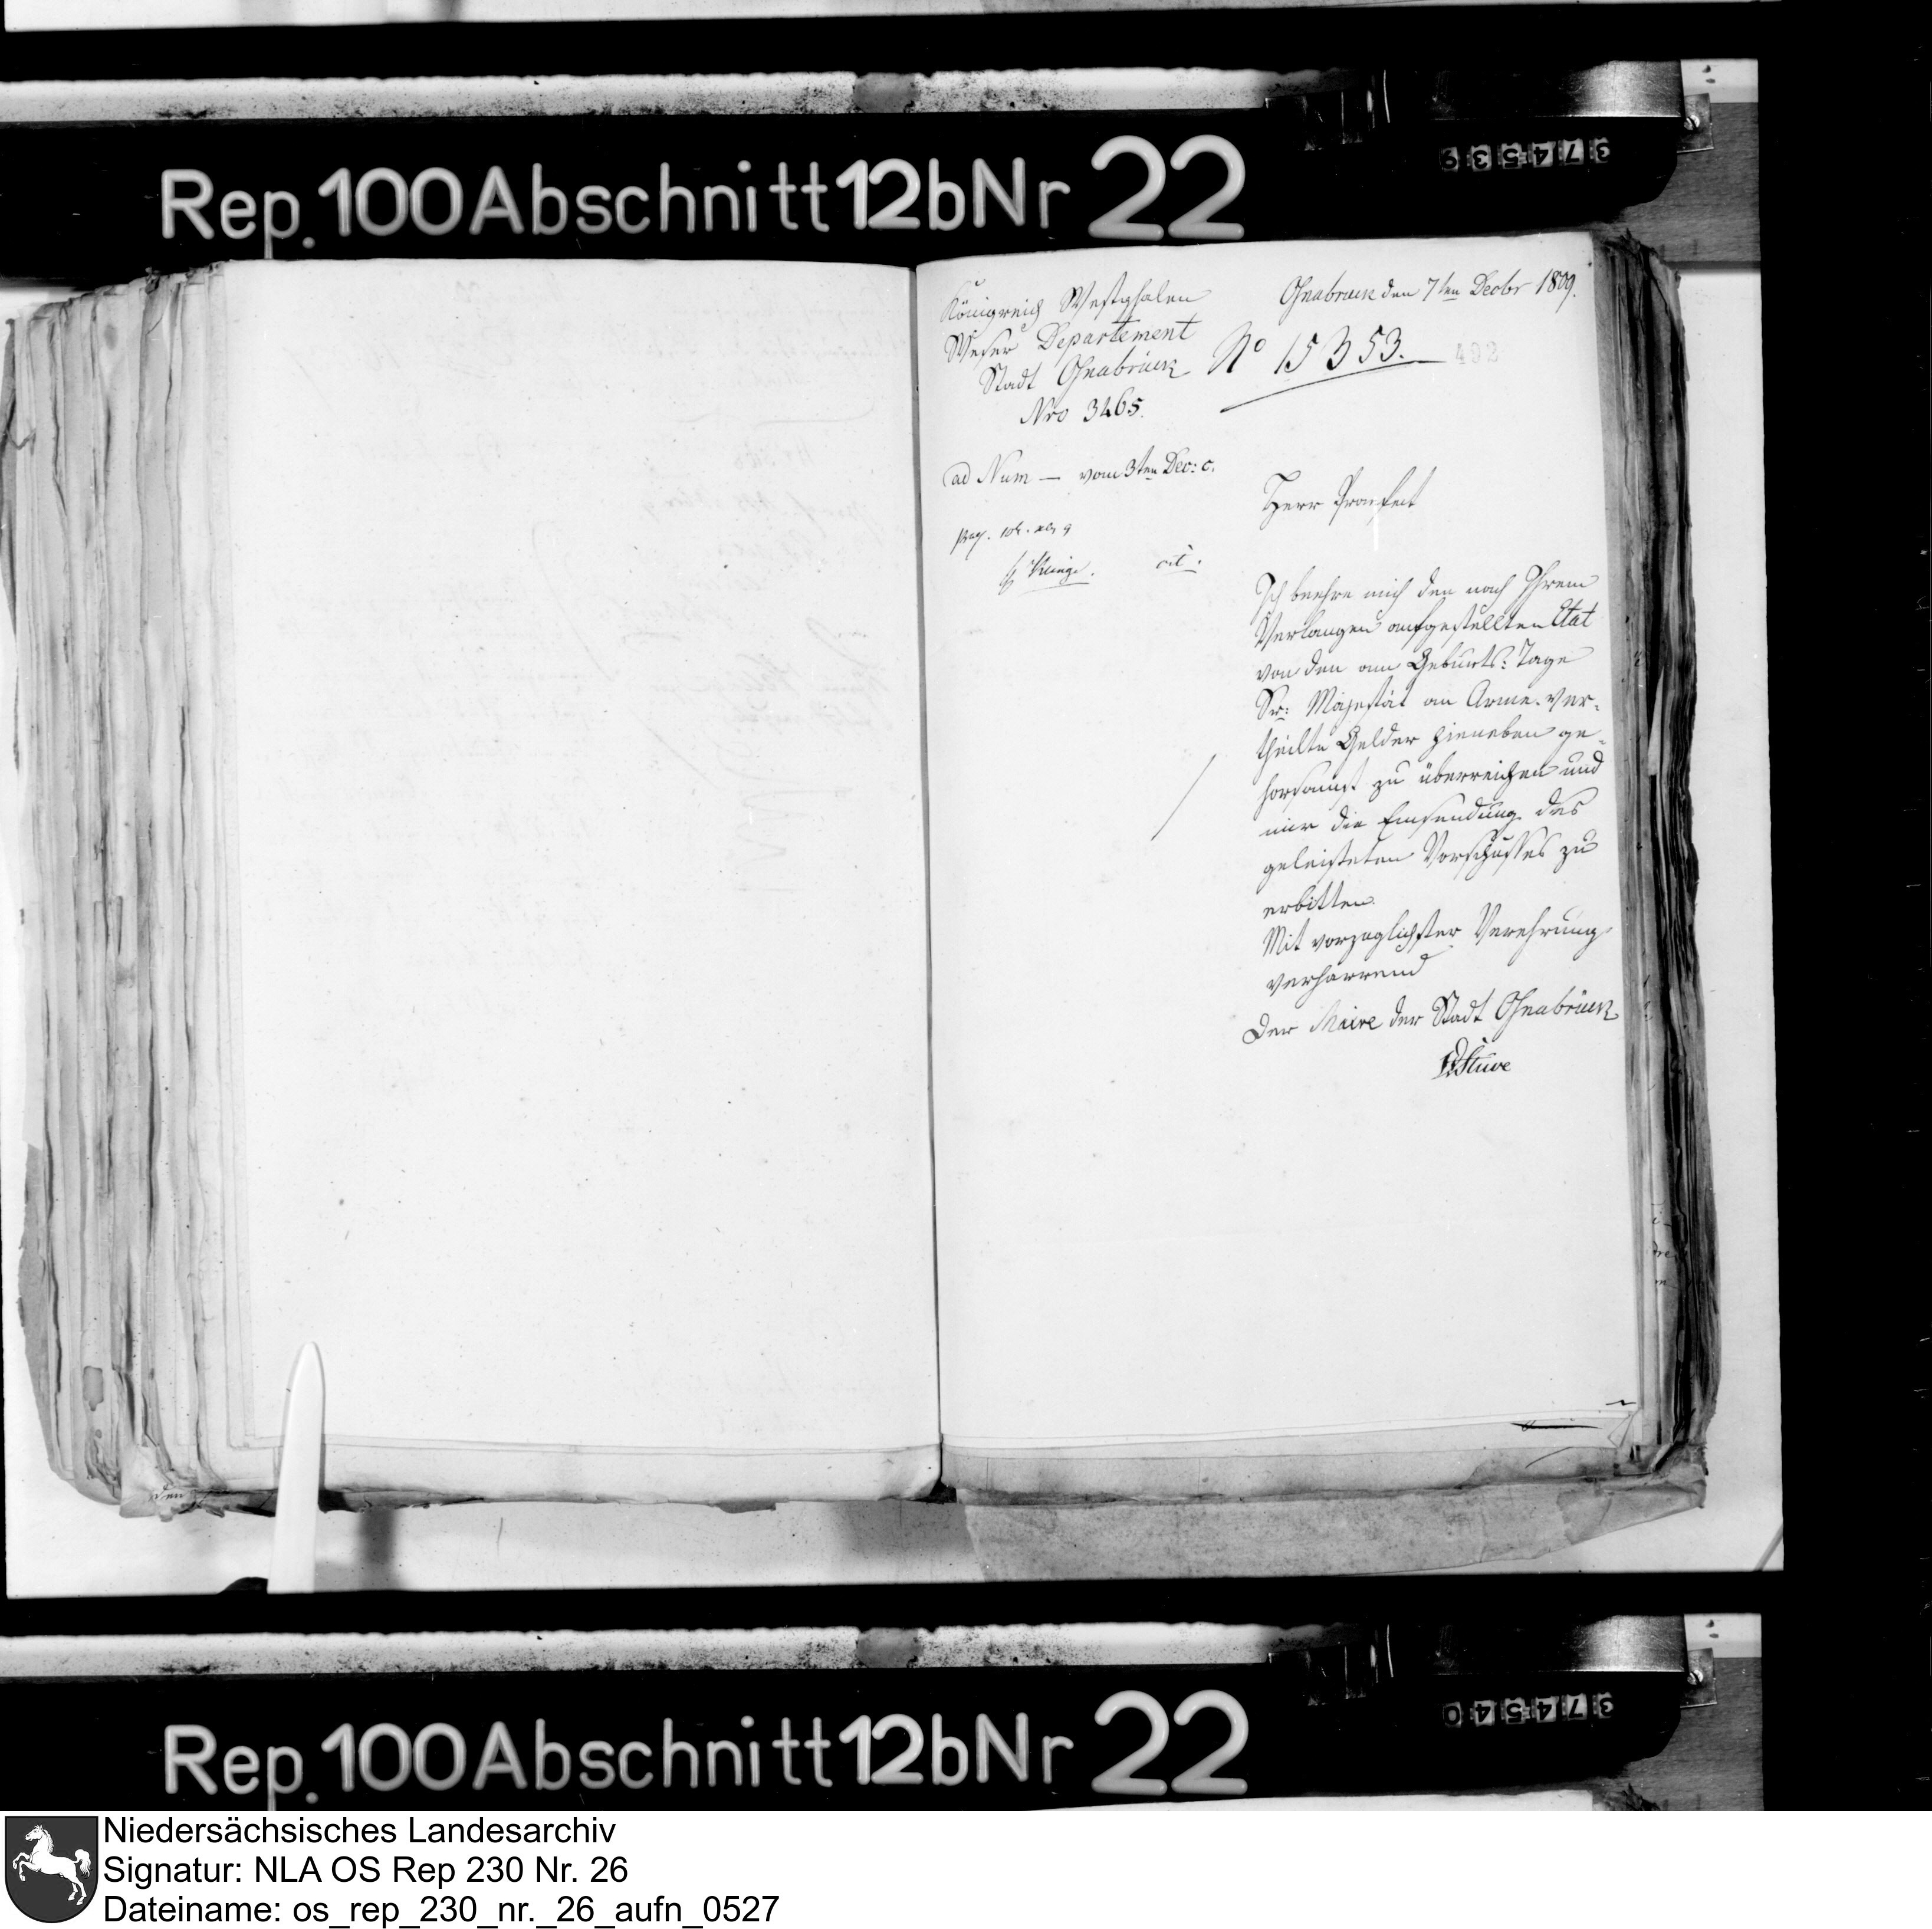 Rep. 100 Abschnitt 12b Nr 22
374539
Königreich Westphalen
Weser Departement
Stadt Osnabrück
Nro 3465.
Osnabruck den 7ten Decbr 1809.
No 15353.
492
ad Num — vom 3ten Dec: c.
cit.
Herr Praefect
Ich beehre mich den nach Ihrem
Verlangen aufgestellten Etat
von den am Geburts: Tage
Sr: Majestät an Arme. ver-
theilte Gelder hieneben ge-
horsamst zu überreichen und
mir die Einsendung des
geleisteten Vorschusses zu
erbitten.
Mit vorzuglichster Verehrung
verharrend
Der Maire der Stadt Osnabrück
Stüve
Rep. 100 Abschnitt 12b Nr 22
374540
Niedersächsisches Landesarchiv
Signatur: NLA OS Rep 230 Nr. 26
Dateiname: os_rep_230_nr._26_aufn_0527